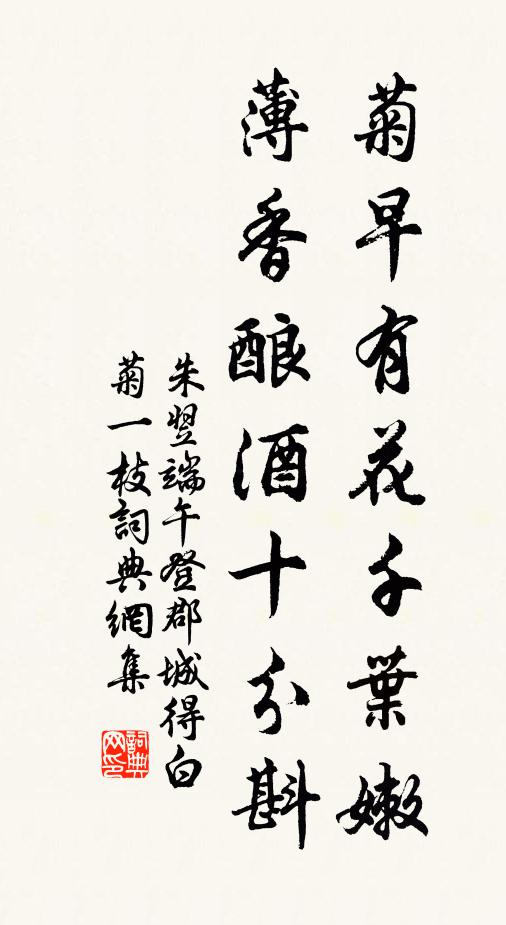 菊早有花千葉嫩
薄香酿酒十分斟
朱翌端午登郡城得白
菊一枝詞典網集
詞典
网印